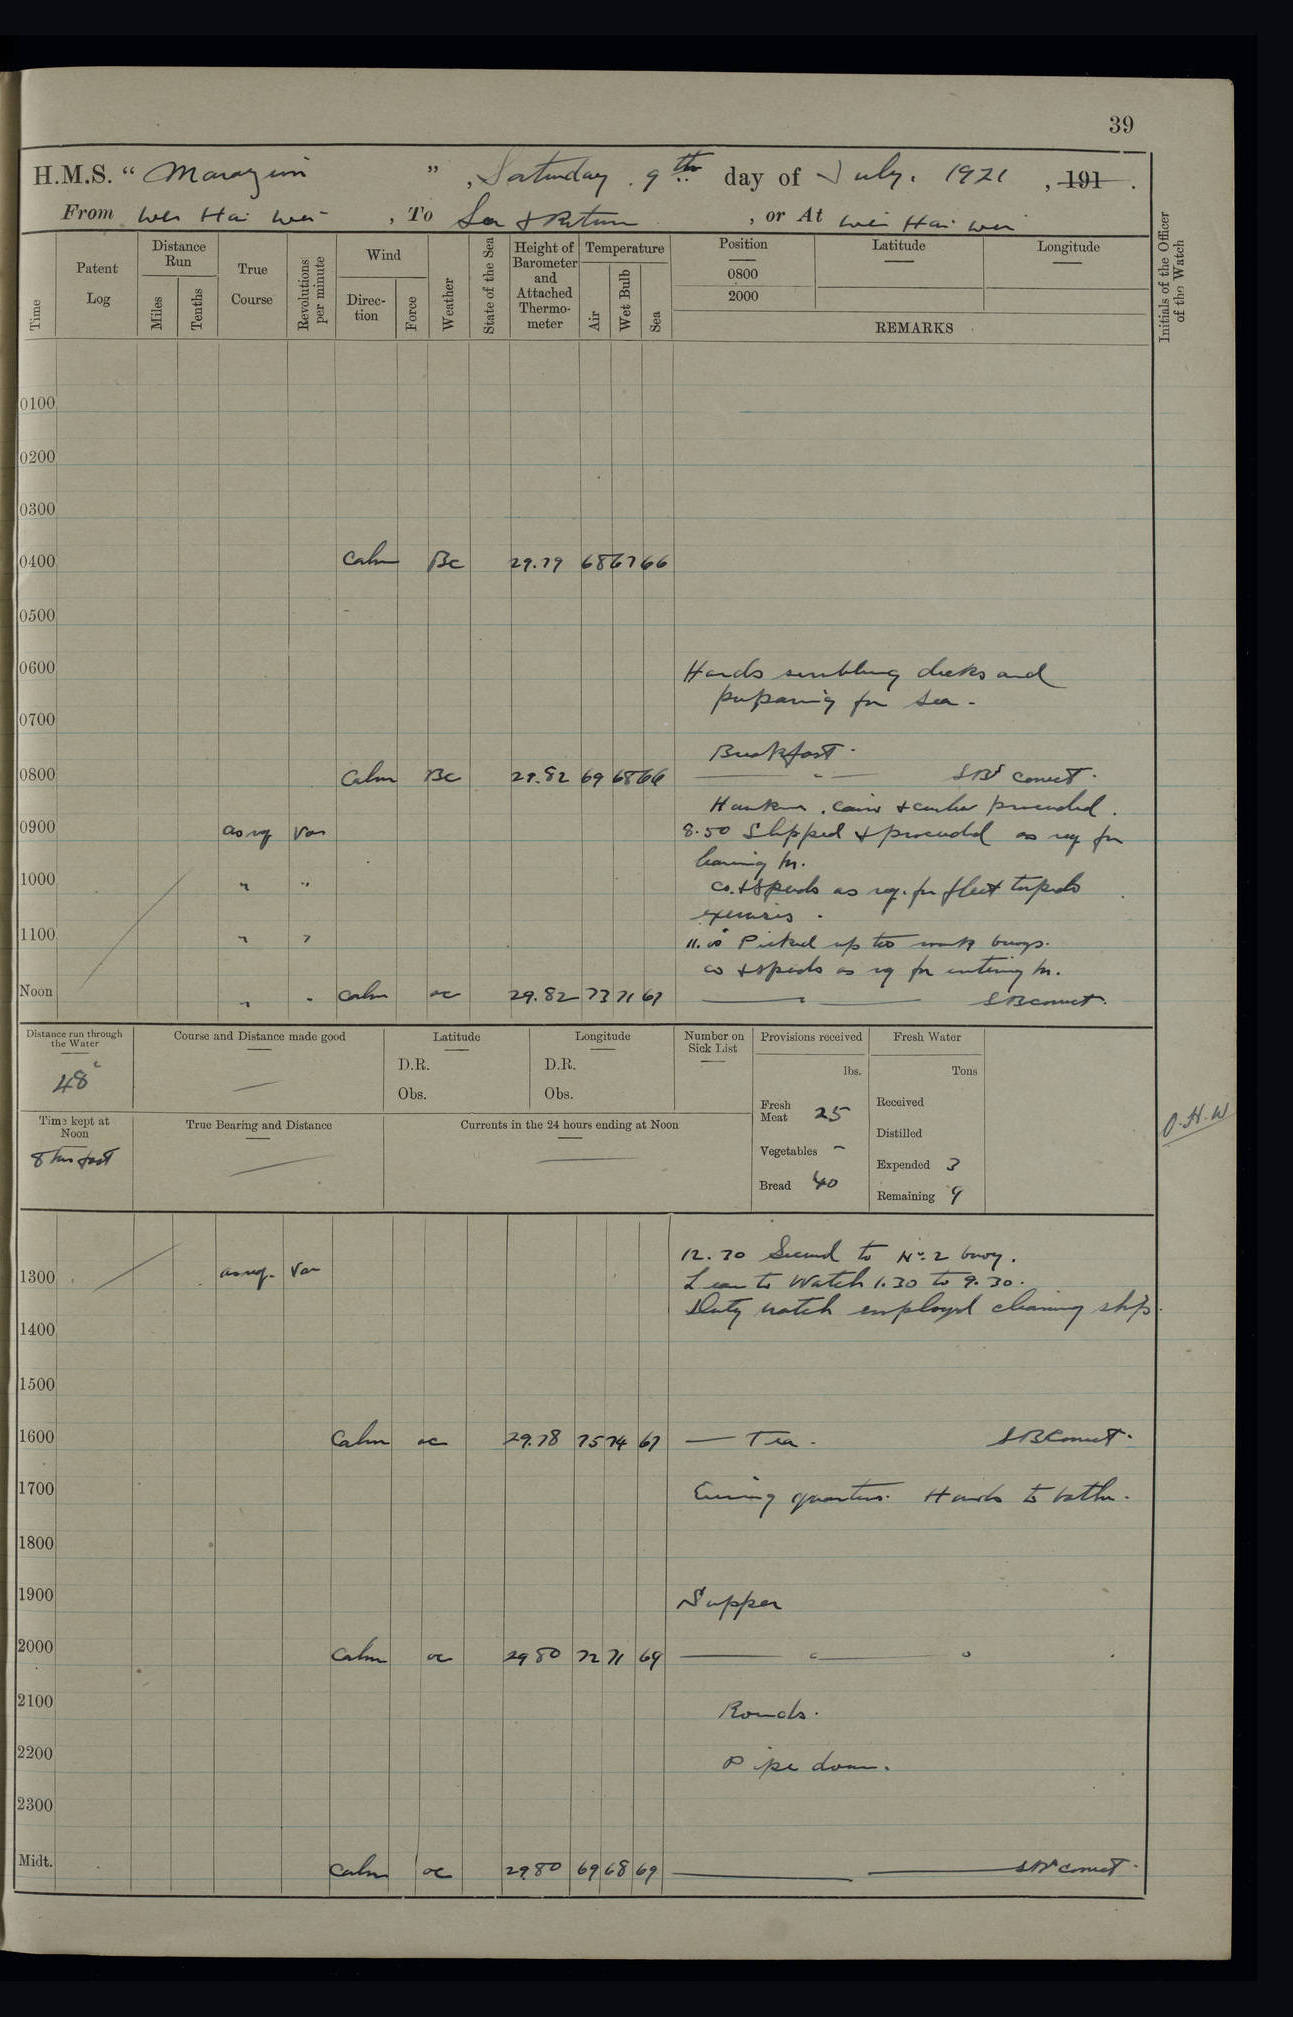 39
H.M.S. " Marazion ", Saturday 9th day of July. 1921, 191 .
From Wei Hai Wei , To Sea & Return , or At Wei Hai Wei
Time
Patent Log
Distance Run
Miles
Tenths
True Course
Revolutions per minute
Wind
Direction
Force
Weather
State of the Sea
Height of Barometer and Attached Thermometer
Temperature
Air
Wet Bulb
Sea
Position
0800
2000
Latitude
Longitude
REMARKS
Initials of the Officer of the Watch
0100
0200
0300
0400 Calm Bc 29.79 68 67 66
0500
0600 Hands scrubbing decks and
preparing for sea.
0700
Breakfast.
0800 Calm Bc 29.82 69 68 66 SBs correct.
0900 as rq Var 8.50 Slipped & proceeded as req for
leaving hr.
1000 " " Co. & Speeds as req. for fleet torpedo
exercises.
1100 " " 11.00 Picked up two mark buoys.
co & speeds as rq for entering hr.
Noon " " Calm oc 29.82 73 71 67 SB correct.
Distance run through the Water
48
Course and Distance made good
Latitude
D.R.
Obs.
Longitude
D.R.
Obs.
Number on Sick List
Provisions received
lbs.
Fresh Meat 25
Vegetables -
Bread 40
Fresh Water
Tons
Received
Distilled
Expended 3
Remaining 9
O.H.W
Time kept at Noon
8 hrs fast
True Bearing and Distance
Currents in the 24 hours ending at Noon
12.30 Secured to No. 2 buoy.
1300 as req. Var Leave to Watch 1.30 to 9.30.
Duty watch employed cleaning ship.
1400
1500
1600 Calm oc 29.78 75 74 67 Tea. SB Correct.
1700 Evening quarters. Hands to bathe.
1800
1900 Supper
2000 Calm oc 29 80 72 71 69
2100 Rounds.
2200 Pipe down.
2300
Midt. Calm oc 29.80 69 68 69 SBs correct.